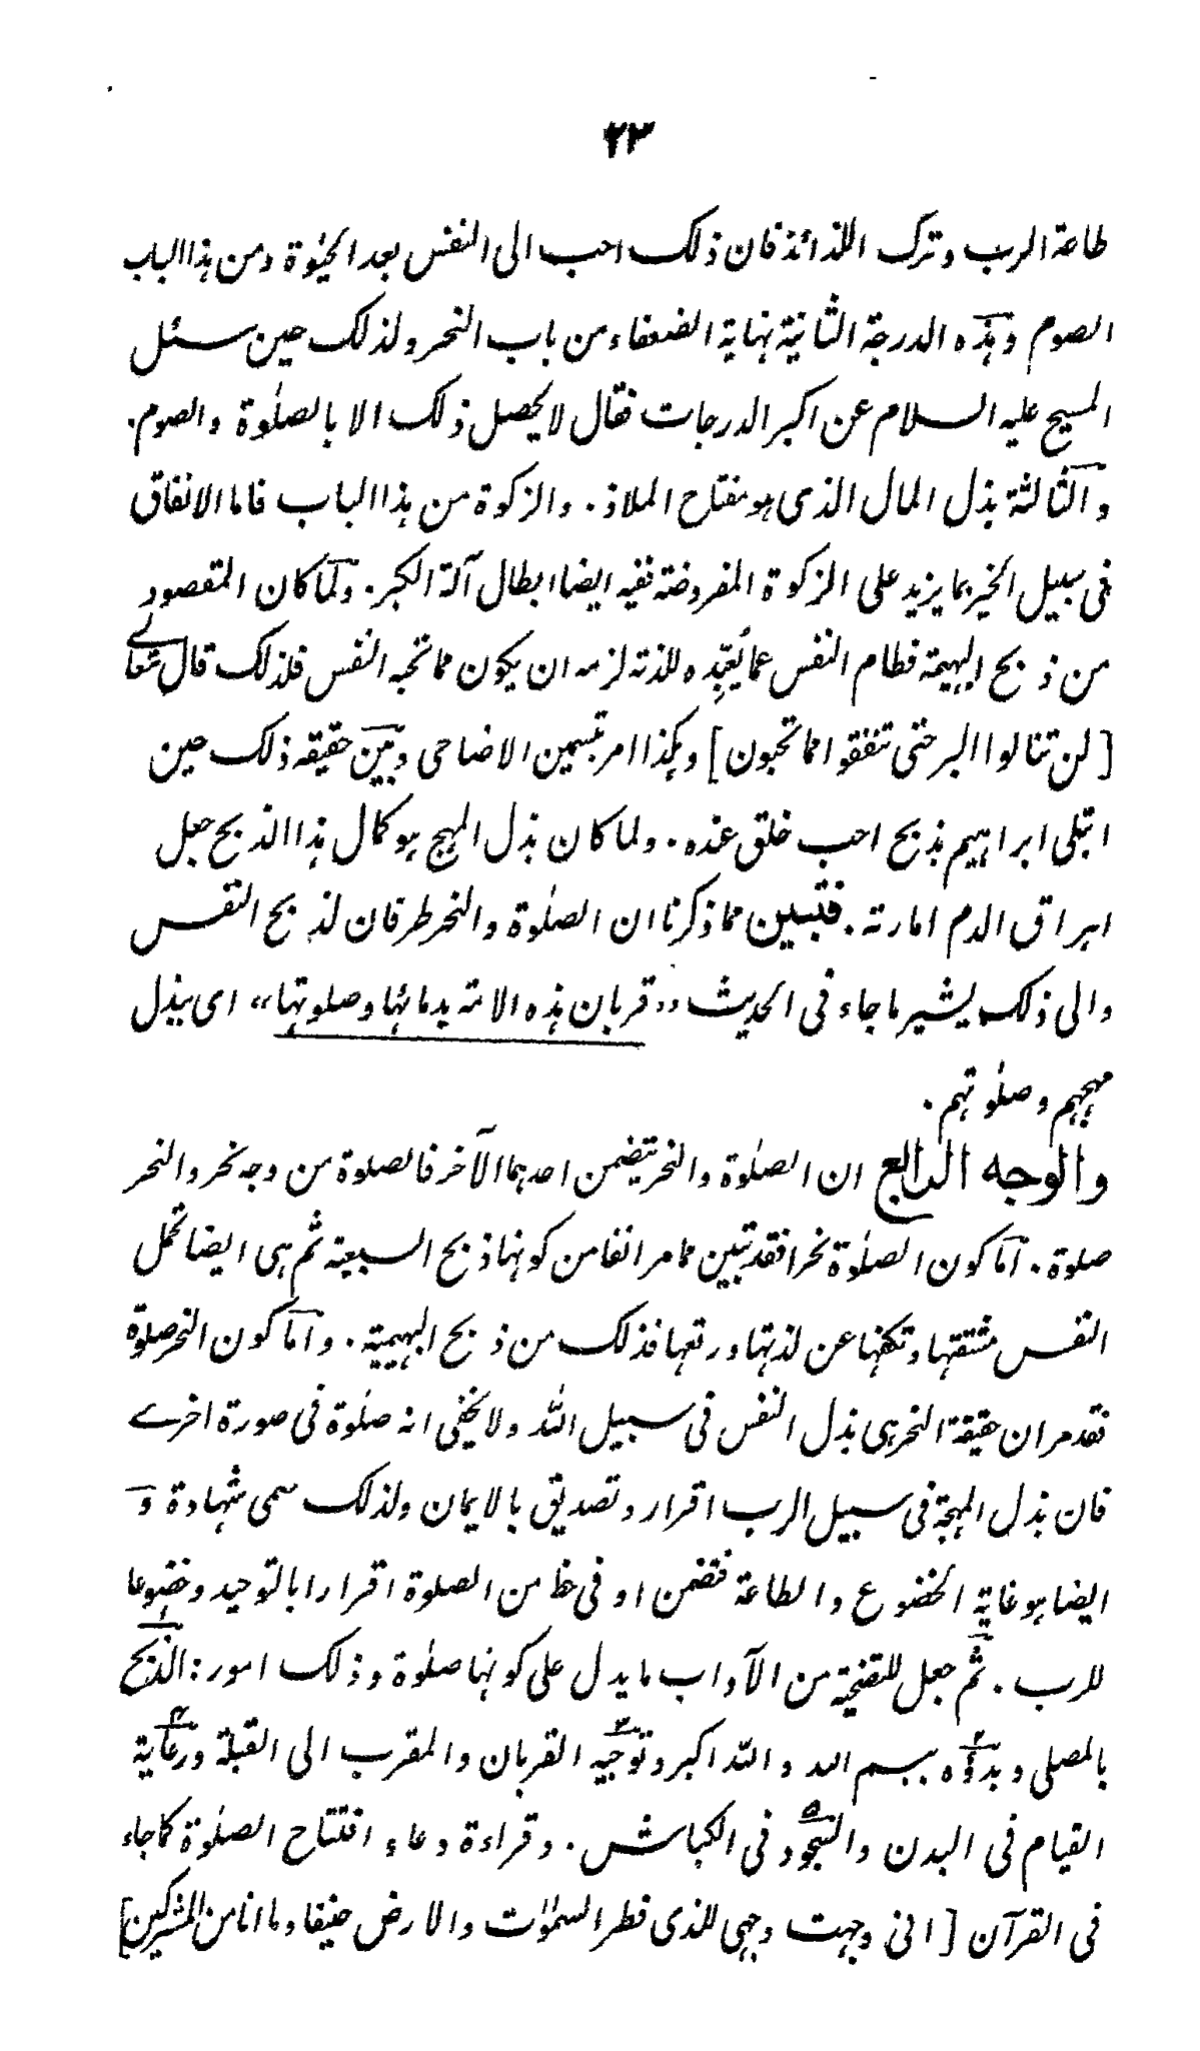 ٢٣
طاعة الرب وترك اللذائذ فان ذلك احب الى النفس بعد الحيٰوة ومن هذا الباب
الصوم وهذه الدرجة الثانية نهاية الضعفاء من باب النحر ولذلك حين سئل
المسيح عليه السلام عن اكبر الدرجات فقال لا يحصل ذلك الا بالصلٰوة والصوم.
والثالثة بذل المال الذى هو مفتاح الملاذ. والزكوة من هذا الباب فاما الانفاق
فى سبيل الخير بما يزيد على الزكوة المفروضة ففيه ايضا ابطال آلة الكبر. ولما كان المقصود
من ذبح البهيمة فطام النفس عما يُعَبِّده للذته لزمه ان يكون مما تحبه النفس فلذلك قال تعالى
[لن تنالوا البر حتى تنفقوا مما تحبون] وهكذا امر بتسمين الاضاحى وبين حقيقه ذلك حين
ابتلى ابراهيم بذبح احب خلق عنده. ولما كان بذل المهج هو كمال هذا الذبح جعل
اهراق الدم امارته. فتبين مما ذكرنا ان الصلٰوة والنحر طرفان لذبح النفس
والى ذلك يشير ما جاء فى الحديث ,,قربان هذه الامة بدمائها وصلوتها،، اى ببذل
مهجهم وصلٰوتهم.
والوجه الرابع ان الصلٰوة والنحر يتضمن احدهما الآخر فالصلوة من وجه نحر والنحر
صلوة. اما كون الصلٰوة نحرا فقد تبين مما مر انفا من كونها ذبح السبعية ثم هى ايضا تحمل
النفس مشقتها وتكفها عن لذتها ورتعها فذلك من ذبح البهيمية. واما كون النحر صلوة
فقد مر ان حقيقة النحر هى بذل النفس فى سبيل الله ولا يخفى انه صلٰوة فى صورة اخرے
فان بذل المهجة فى سبيل الرب اقرار وتصديق بالايمان ولذلك سمى شهادة و
ايضا هو غاية الخضوع والطاعة فتضمن اوفى حظا من الصلوة اقرارا بالتوحيد وخضوعا
للرب. ثم جعل للتضحية من الآداب ما يدل على كونها صلٰوة وذلك امور: الذبح
بالمصلى وبدؤه ببسم الله والله اكبر وتوجيه القربان والمقرب الى القبلة ورعاية
القيام فى البدن والسجود فى الكباش. وقراءة دعاء افتتاح الصلٰوة كما جاء
فى القرآن [انى وجهت وجهى للذى فطر السمٰوٰت والارض حنيفا وما انا من المشركين]